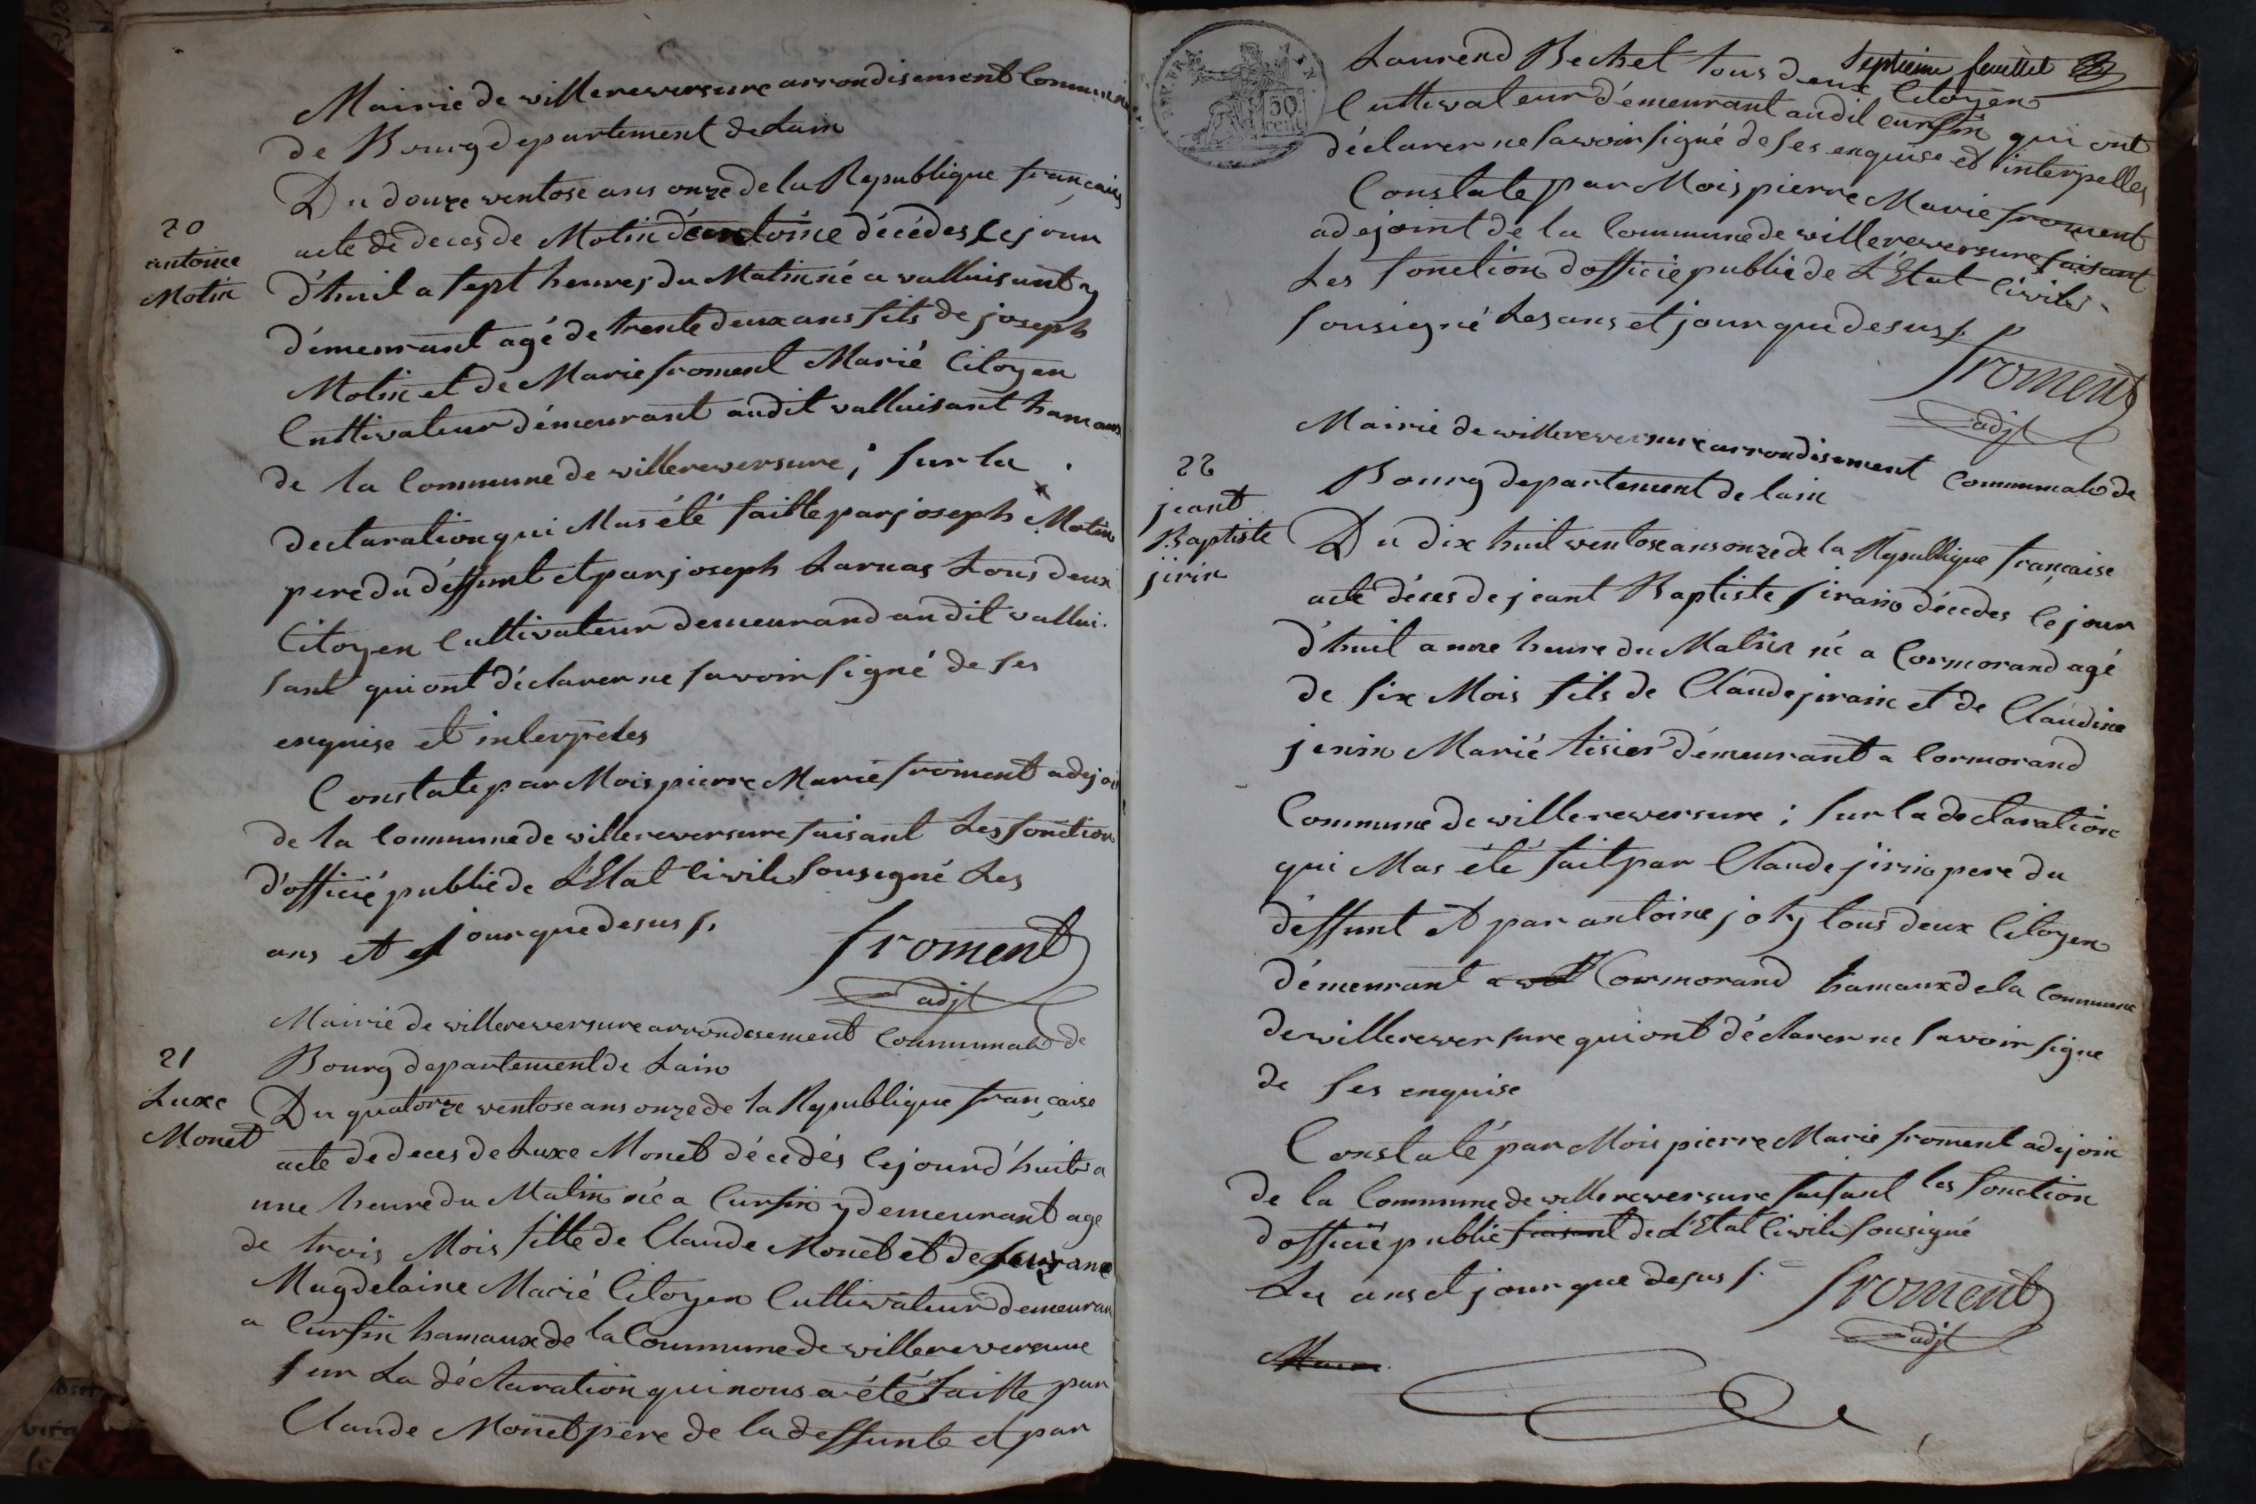 Mairie de villereversure arrondisement Commun
de Bourg departement de Lain
Du douze ventose ans onze de la Republique française
20
antoine
Motin
acte de deces de Motin d'antoine décédes Le jour
d'huit a sept heures du Matin né a valluisant y
démeurant agé de trente deux ans fils de joseph
Motin et de Marie froment Marié Citoyen
Cultivateur démeurant audit valluisant hamaux
de la Commune de villereversure ; sur la
declaration qui Mas été faitte par joseph Motin
pere du déffunt et par joseph Larnas tous deux
Citoyen Cultivateur demeurand audit vallui-
sant qui ont déclarer ne savoir signé de ses
enquise et interpeles
Constate par Mois pierre Marie froment adejoi
de la Commune de villereversure faisant Les fonction
d'officié publié de L'Etat Civile Sousegné Les
ans et jour que desus s.
froment
adjt
Mairie de villereversure arrondesement Communale de
Bourg departement de Lain
21
Luxe
Monet
Du quatorze ventose ans onze de la Republique française
acte de deces de Luxe Monet décédés Cejourd'huit a
une heure du Matin né a Cursin y demeurant age
de trois Mois fille de Claude Monet et de
Magdelaine Marié Citoyen Cultivateur demeuran
a Cursin hamaux de la Commune de villereversure
sur La déclaration qui nous a été faitte par
Claude Monet pere de la deffunte et par
septieme feuillet
Laurend Bechet tous deux Citoyen
Cultivateur démeurant audit Cursin qui ont
déclarer ne savoir signé de ses enquise et interpelles
Constate par Mois pierre Marie froment
adejoint de la Commune de villereversure faisant
Les fonction d'officié publié de L'Etat Civile
sousigné Les ans et jour que desus s.
froment
adjt
50
cent
22
jeant
Baptiste
jirin
Mairie de villereversure arrondisement Communale de
Bourg departement de lain
Du dix huit ventose ans onze de la Republique française
acte déces de jeant Baptiste jirain décedes Cejour
d'huit a une heure du Matin né a Cormorand agé
de six Mois fils de Claude jirain et de Claudine
jenin Marié tisier démeurant a Cormorand
Commune de villereversure ; sur la declaration
qui Mas été fait par Claude jirin pere du
déffunt et par antoine joly tous deux Citoyen
démeurant a Cormorand hamaux de la Commune
de villereversure qui ont déclarer ne savoir signe
de ses enquise
Constaté par Mois pierre Marie froment adejoin
de la Commune de villereversure faisant les fonction
d'officié publié faisant de L'Etat Civile sousigné
Les ans et jour que desus s.
froment
adjt